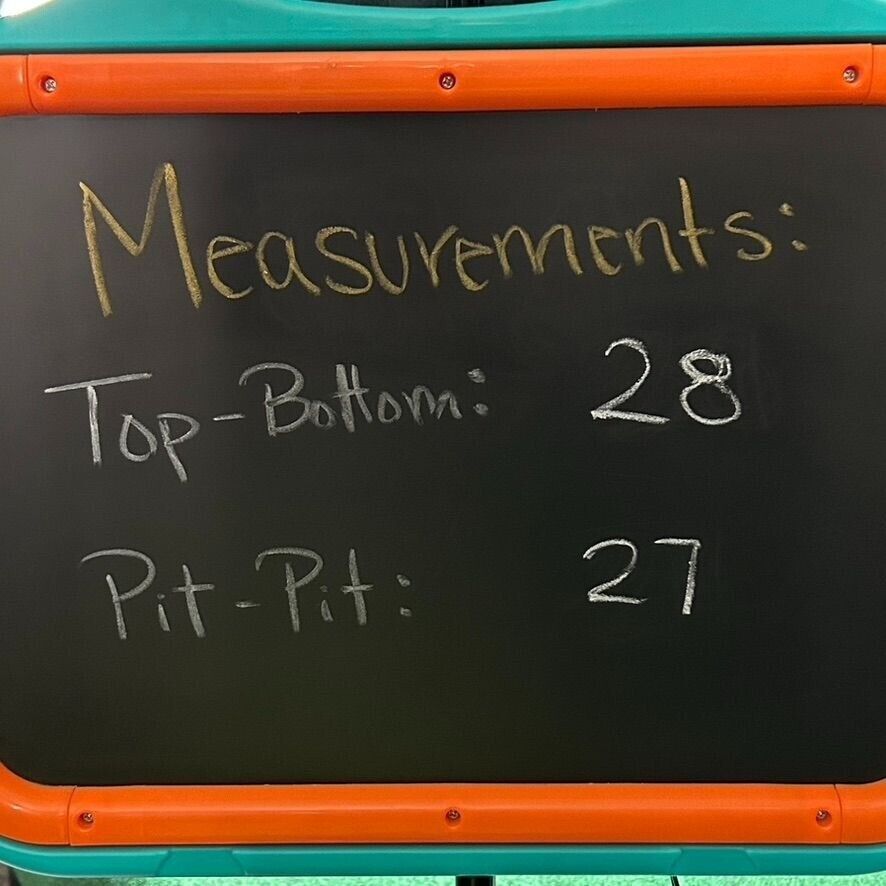 Measurements:
Top-Bottom: 28
Pit-Pit: 27